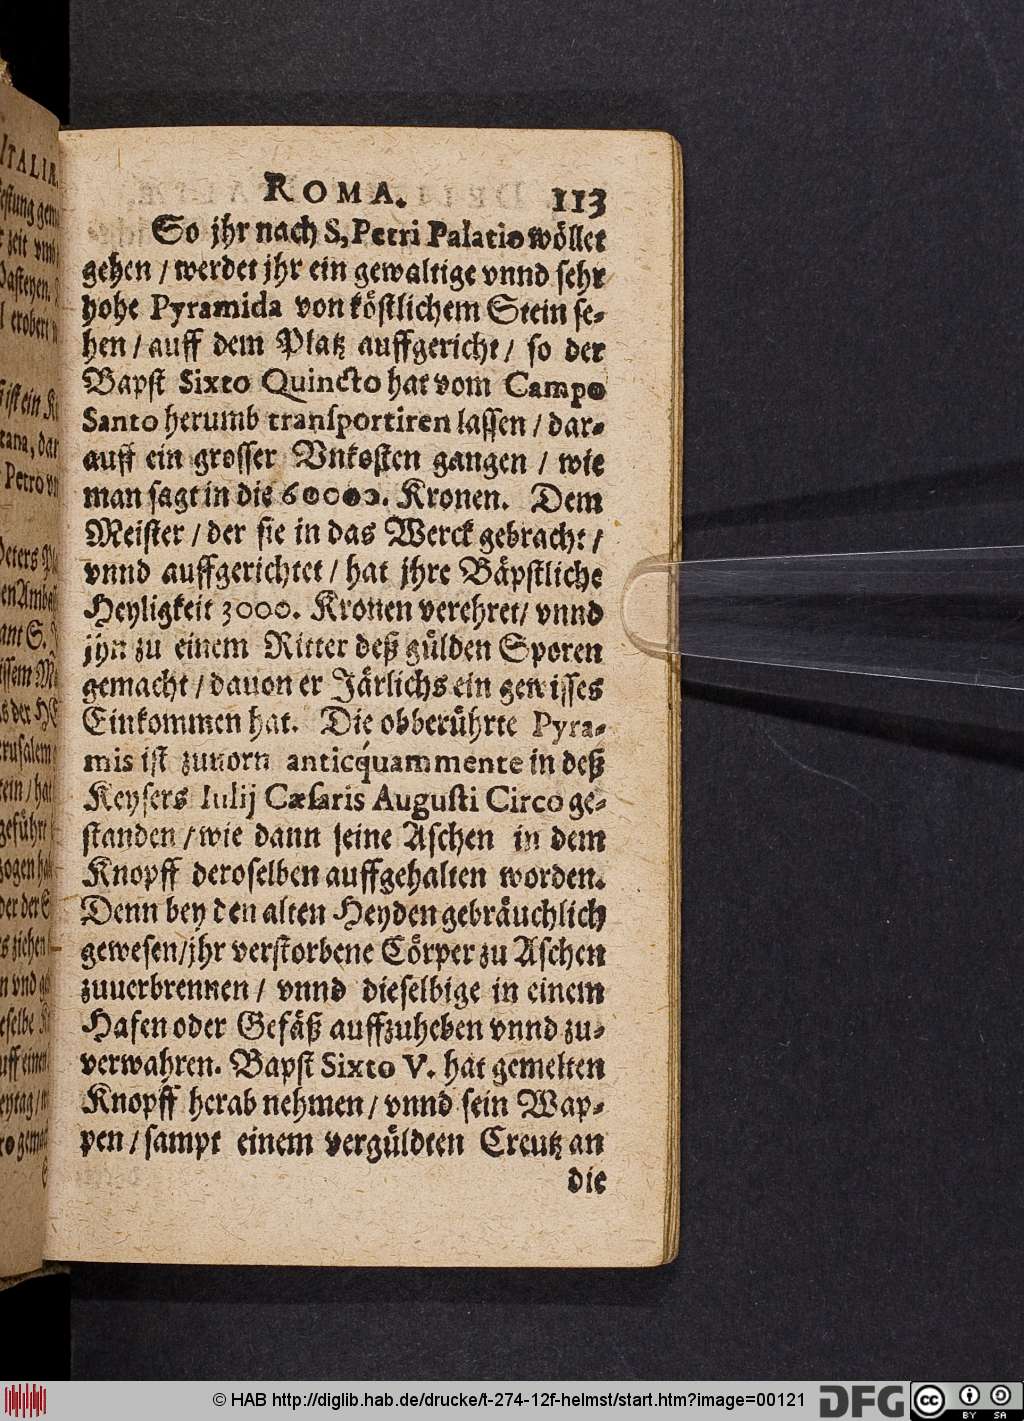 ROMA. 113
So jhr nach S, Petri Palatio wöllet
gehen / werdet jhr ein gewaltige vnnd sehr
hohe Pyramida von köstlichem Stein se-
hen / auff dem Platz auffgericht / so der
Bapst Sixto Quincto hat vom Campo
Santo herumb transportiren lassen / dar-
auff ein grosser Vnkosten gangen / wie
man sagt in die 60000. Kronen. Dem
Meister / der sie in das Werck gebracht /
vnnd auffgerichtet / hat jhre Bäpstliche
Heyligkeit 3000. Kronen verehret / vnnd
jhn zu einem Ritter deß gülden Sporen
gemacht / dauon er Järlichs ein gewisses
Einkommen hat. Die obberührte Pyra-
mis ist zuuorn anticquammente in deß
Keysers Iulij Cæsaris Augusti Circo ge-
standen / wie dann seine Aschen in dem
Knopff deroselben auffgehalten worden.
Denn bey den alten Heyden gebräuchlich
gewesen / jhr verstorbene Cörper zu Aschen
zuuerbrennen / vnnd dieselbige in einem
Hafen oder Gefäß auffzuheben vnnd zu-
verwahren. Bapst Sixto V. hat gemelten
Knopff herab nehmen / vnnd sein Wap-
pen / sampt einem vergüldten Creutz an
die
© HAB http://diglib.hab.de/drucke/t-274-12f-helmst/start.htm?image=00121
DFG
cc BY SA